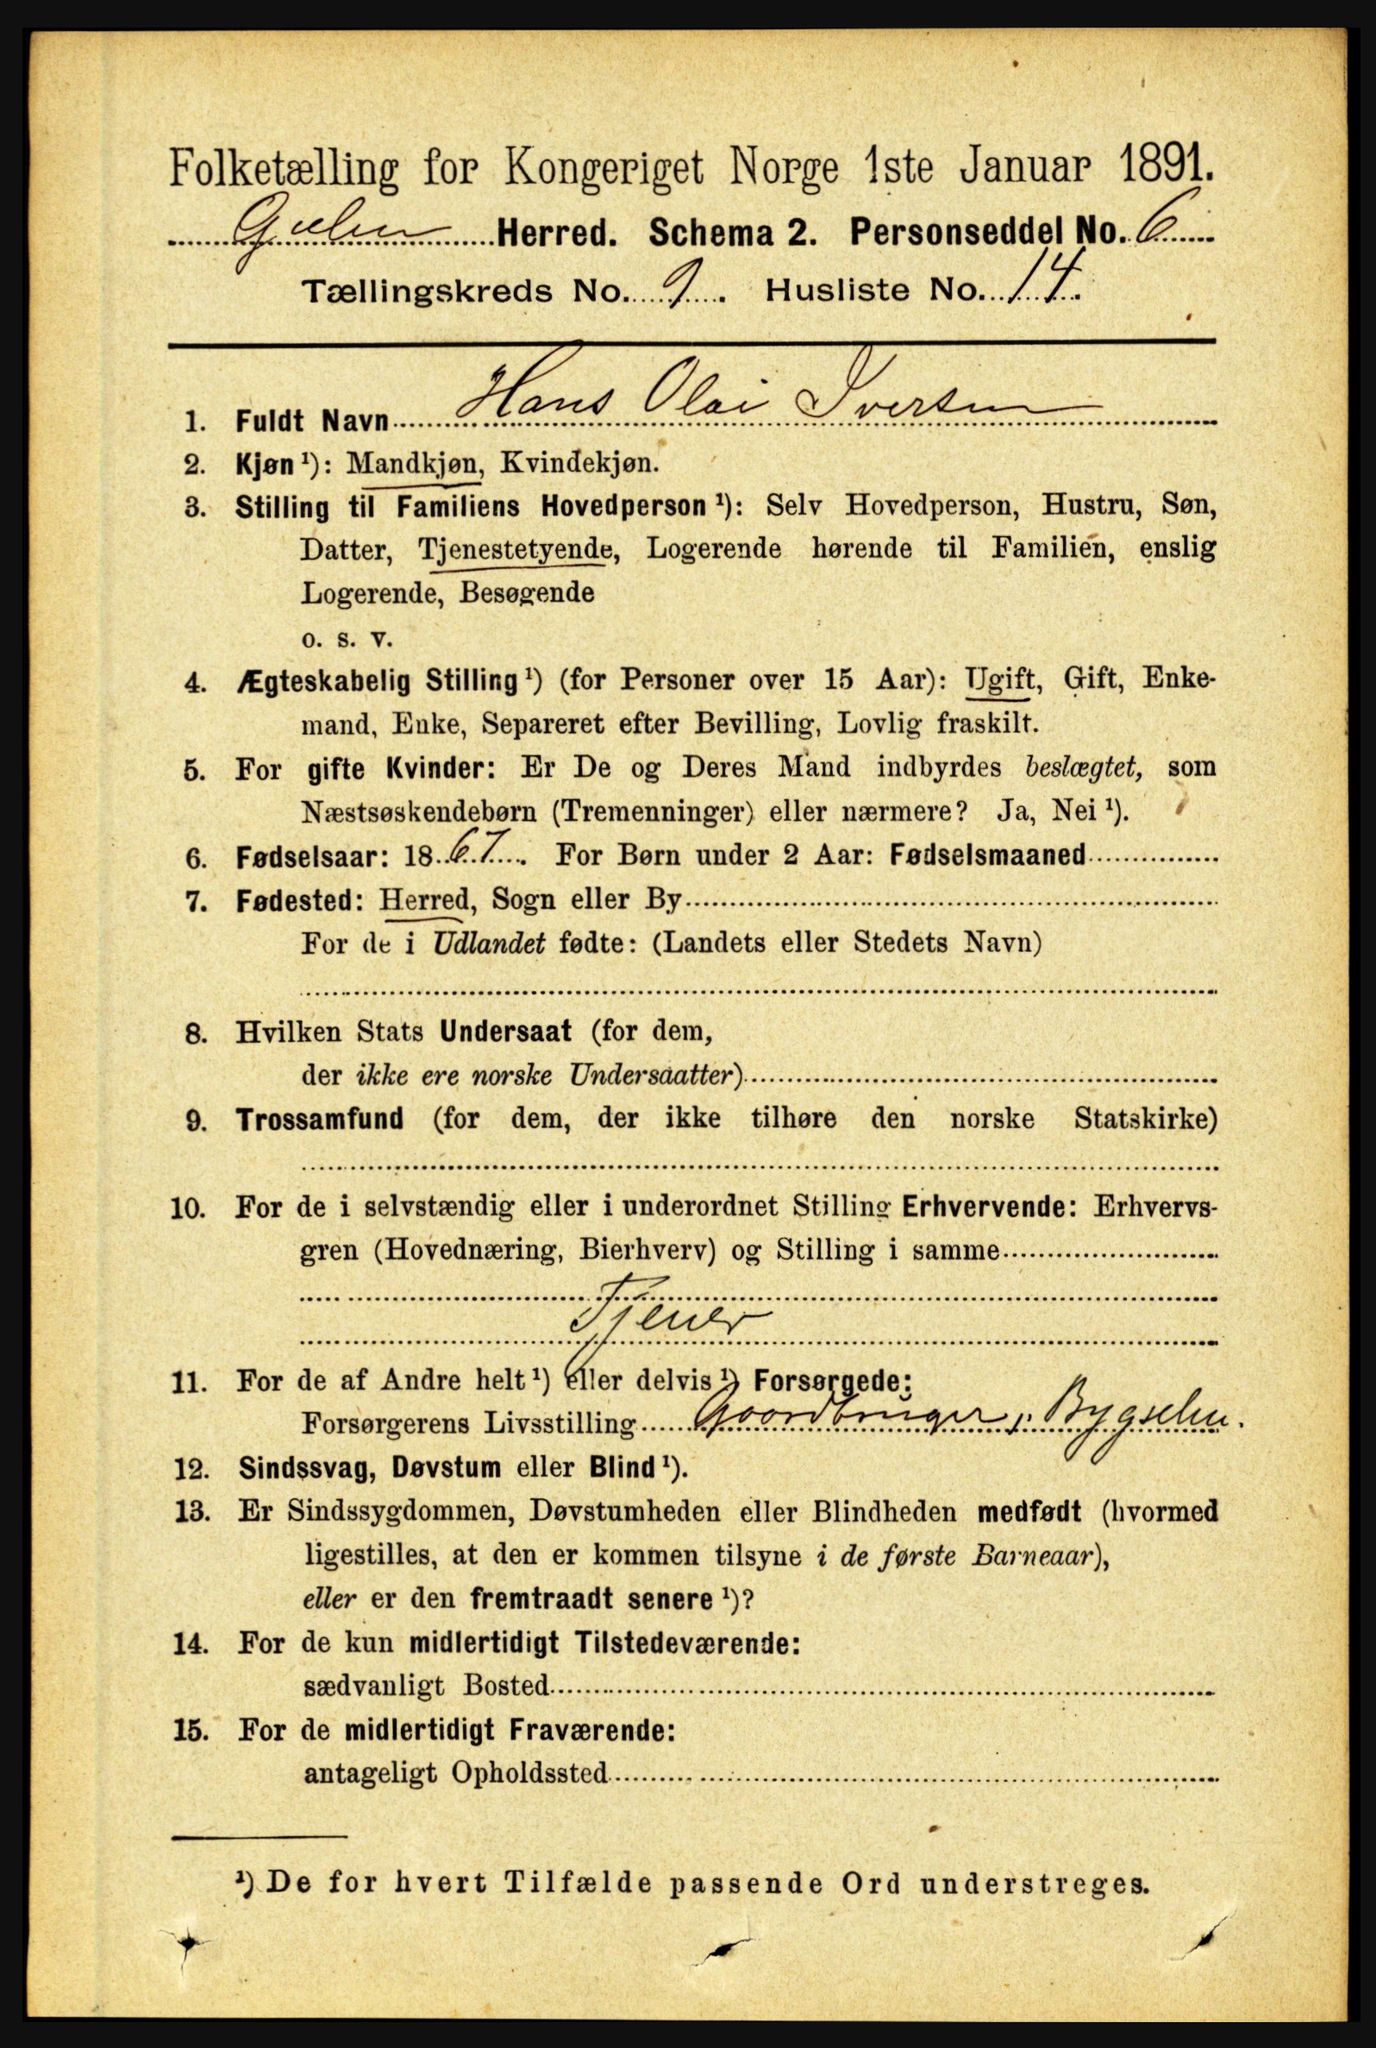 Folketælling for Kongeriget Norge 1ste Januar 1891.
Gulen Herred. Schema 2. Personseddel No. 6
Tællingskreds No. 9. Husliste No. 14.
1. Fuldt Navn Hans Olai Iversen
2. Kjøn ¹): Mandkjøn, Kvindekjøn.
3. Stilling til Familiens Hovedperson ¹): Selv Hovedperson, Hustru, Søn,
Datter, Tjenestetyende, Logerende hørende til Familien, enslig
Logerende, Besøgende
o. s. v.
4. Ægteskabelig Stilling ¹) (for Personer over 15 Aar): Ugift, Gift, Enke-
mand, Enke, Separeret efter Bevilling, Lovlig fraskilt.
5. For gifte Kvinder: Er De og Deres Mand indbyrdes beslægtet, som
Næstsøskendebørn (Tremenninger) eller nærmere? Ja, Nei ¹).
6. Fødselsaar: 1867. For Børn under 2 Aar: Fødselsmaaned
7. Fødested: Herred, Sogn eller By
For de i Udlandet fødte: (Landets eller Stedets Navn)
8. Hvilken Stats Undersaat (for dem,
der ikke ere norske Undersaatter)
9. Trossamfund (for dem, der ikke tilhøre den norske Statskirke)
10. For de i selvstændig eller i underordnet Stilling Erhvervende: Erhvervs-
gren (Hovednæring, Bierhverv) og Stilling i samme
Tjener
11. For de af Andre helt ¹) eller delvis ¹) Forsørgede:
Forsørgerens Livsstilling Gaardbruger, Bygselm.
12. Sindssvag, Døvstum eller Blind ¹).
13. Er Sindssygdommen, Døvstumheden eller Blindheden medfødt (hvormed
ligestilles, at den er kommen tilsyne i de første Barneaar),
eller er den fremtraadt senere ¹)?
14. For de kun midlertidigt Tilstedeværende:
sædvanligt Bosted
15. For de midlertidigt Fraværende:
antageligt Opholdssted
¹) De for hvert Tilfælde passende Ord understreges.